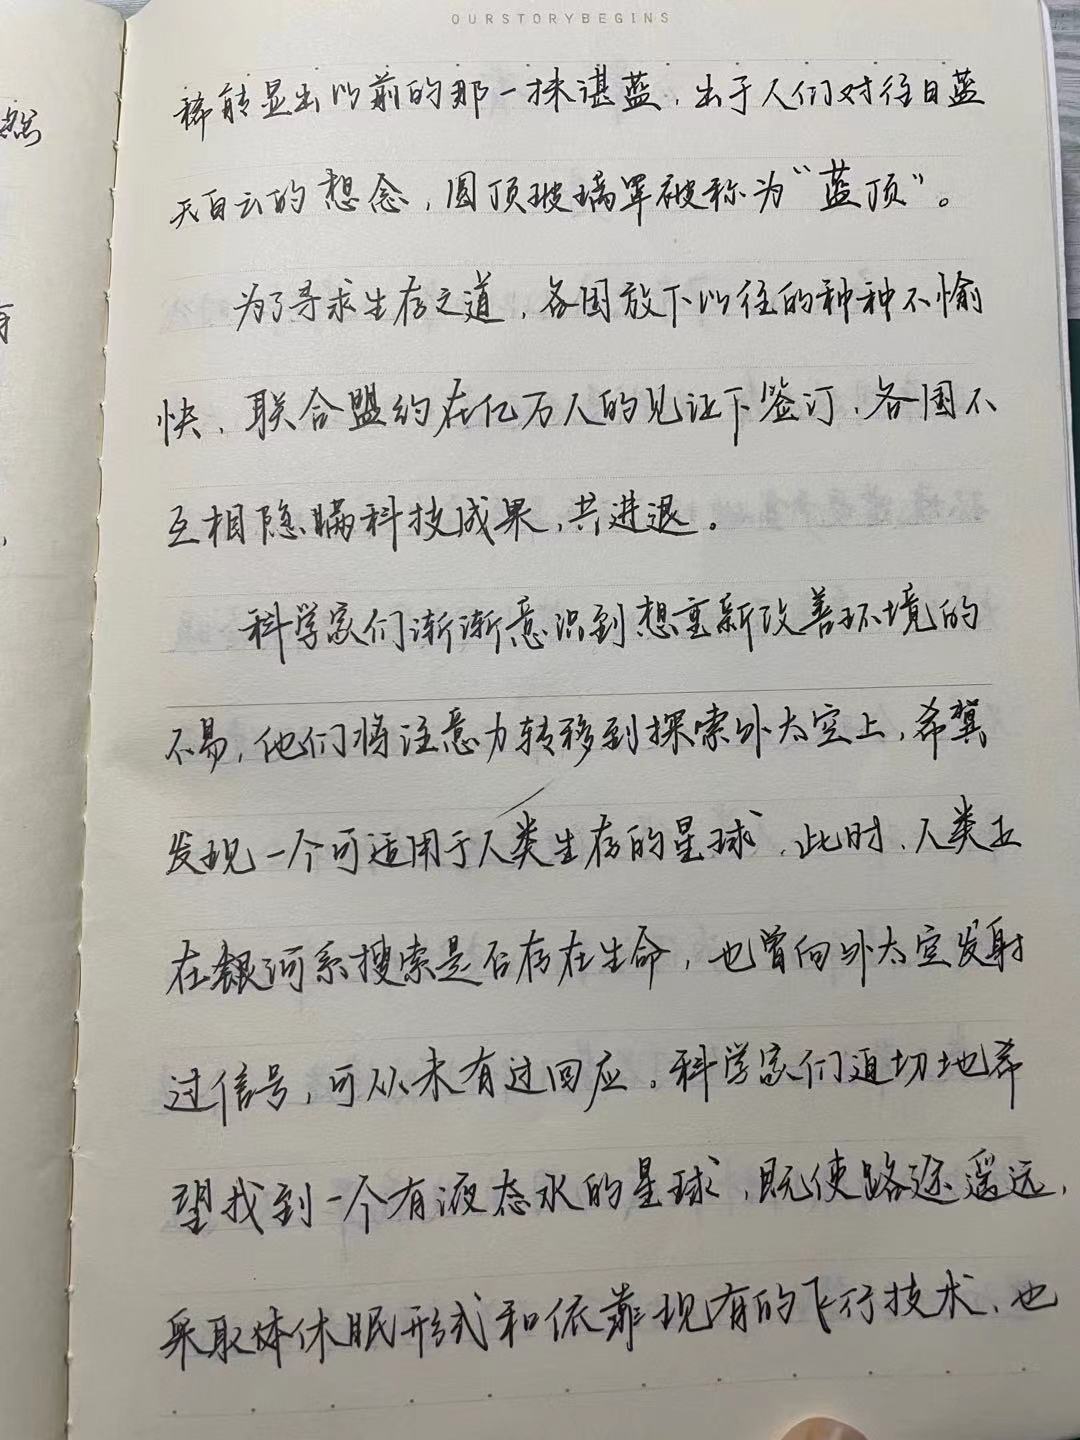 OURSTORYBEGINS
稀能显出以前的那一抹湛蓝，出于人们对往日蓝
天白云的想念，圆顶玻璃罩被称为“蓝顶”。
为了寻求生存之道，各国放下以往的种种不愉
快，联合盟约在亿万人的见证下签订，各国不
互相隐瞒科技成果，共进退。
科学家们渐渐意识到想重新改善环境的
不易，他们将注意力转移到探索外太空上，希冀
发现一个可适用于人类生存的星球，此时，人类正
在银河系搜索是否存在生命，也曾向外太空发射
过信号，可从未有过回应。科学家们迫切地希
望找到一个有液态水的星球，既使路途遥远，
采取体休眠形式和依靠现有的飞行技术，也